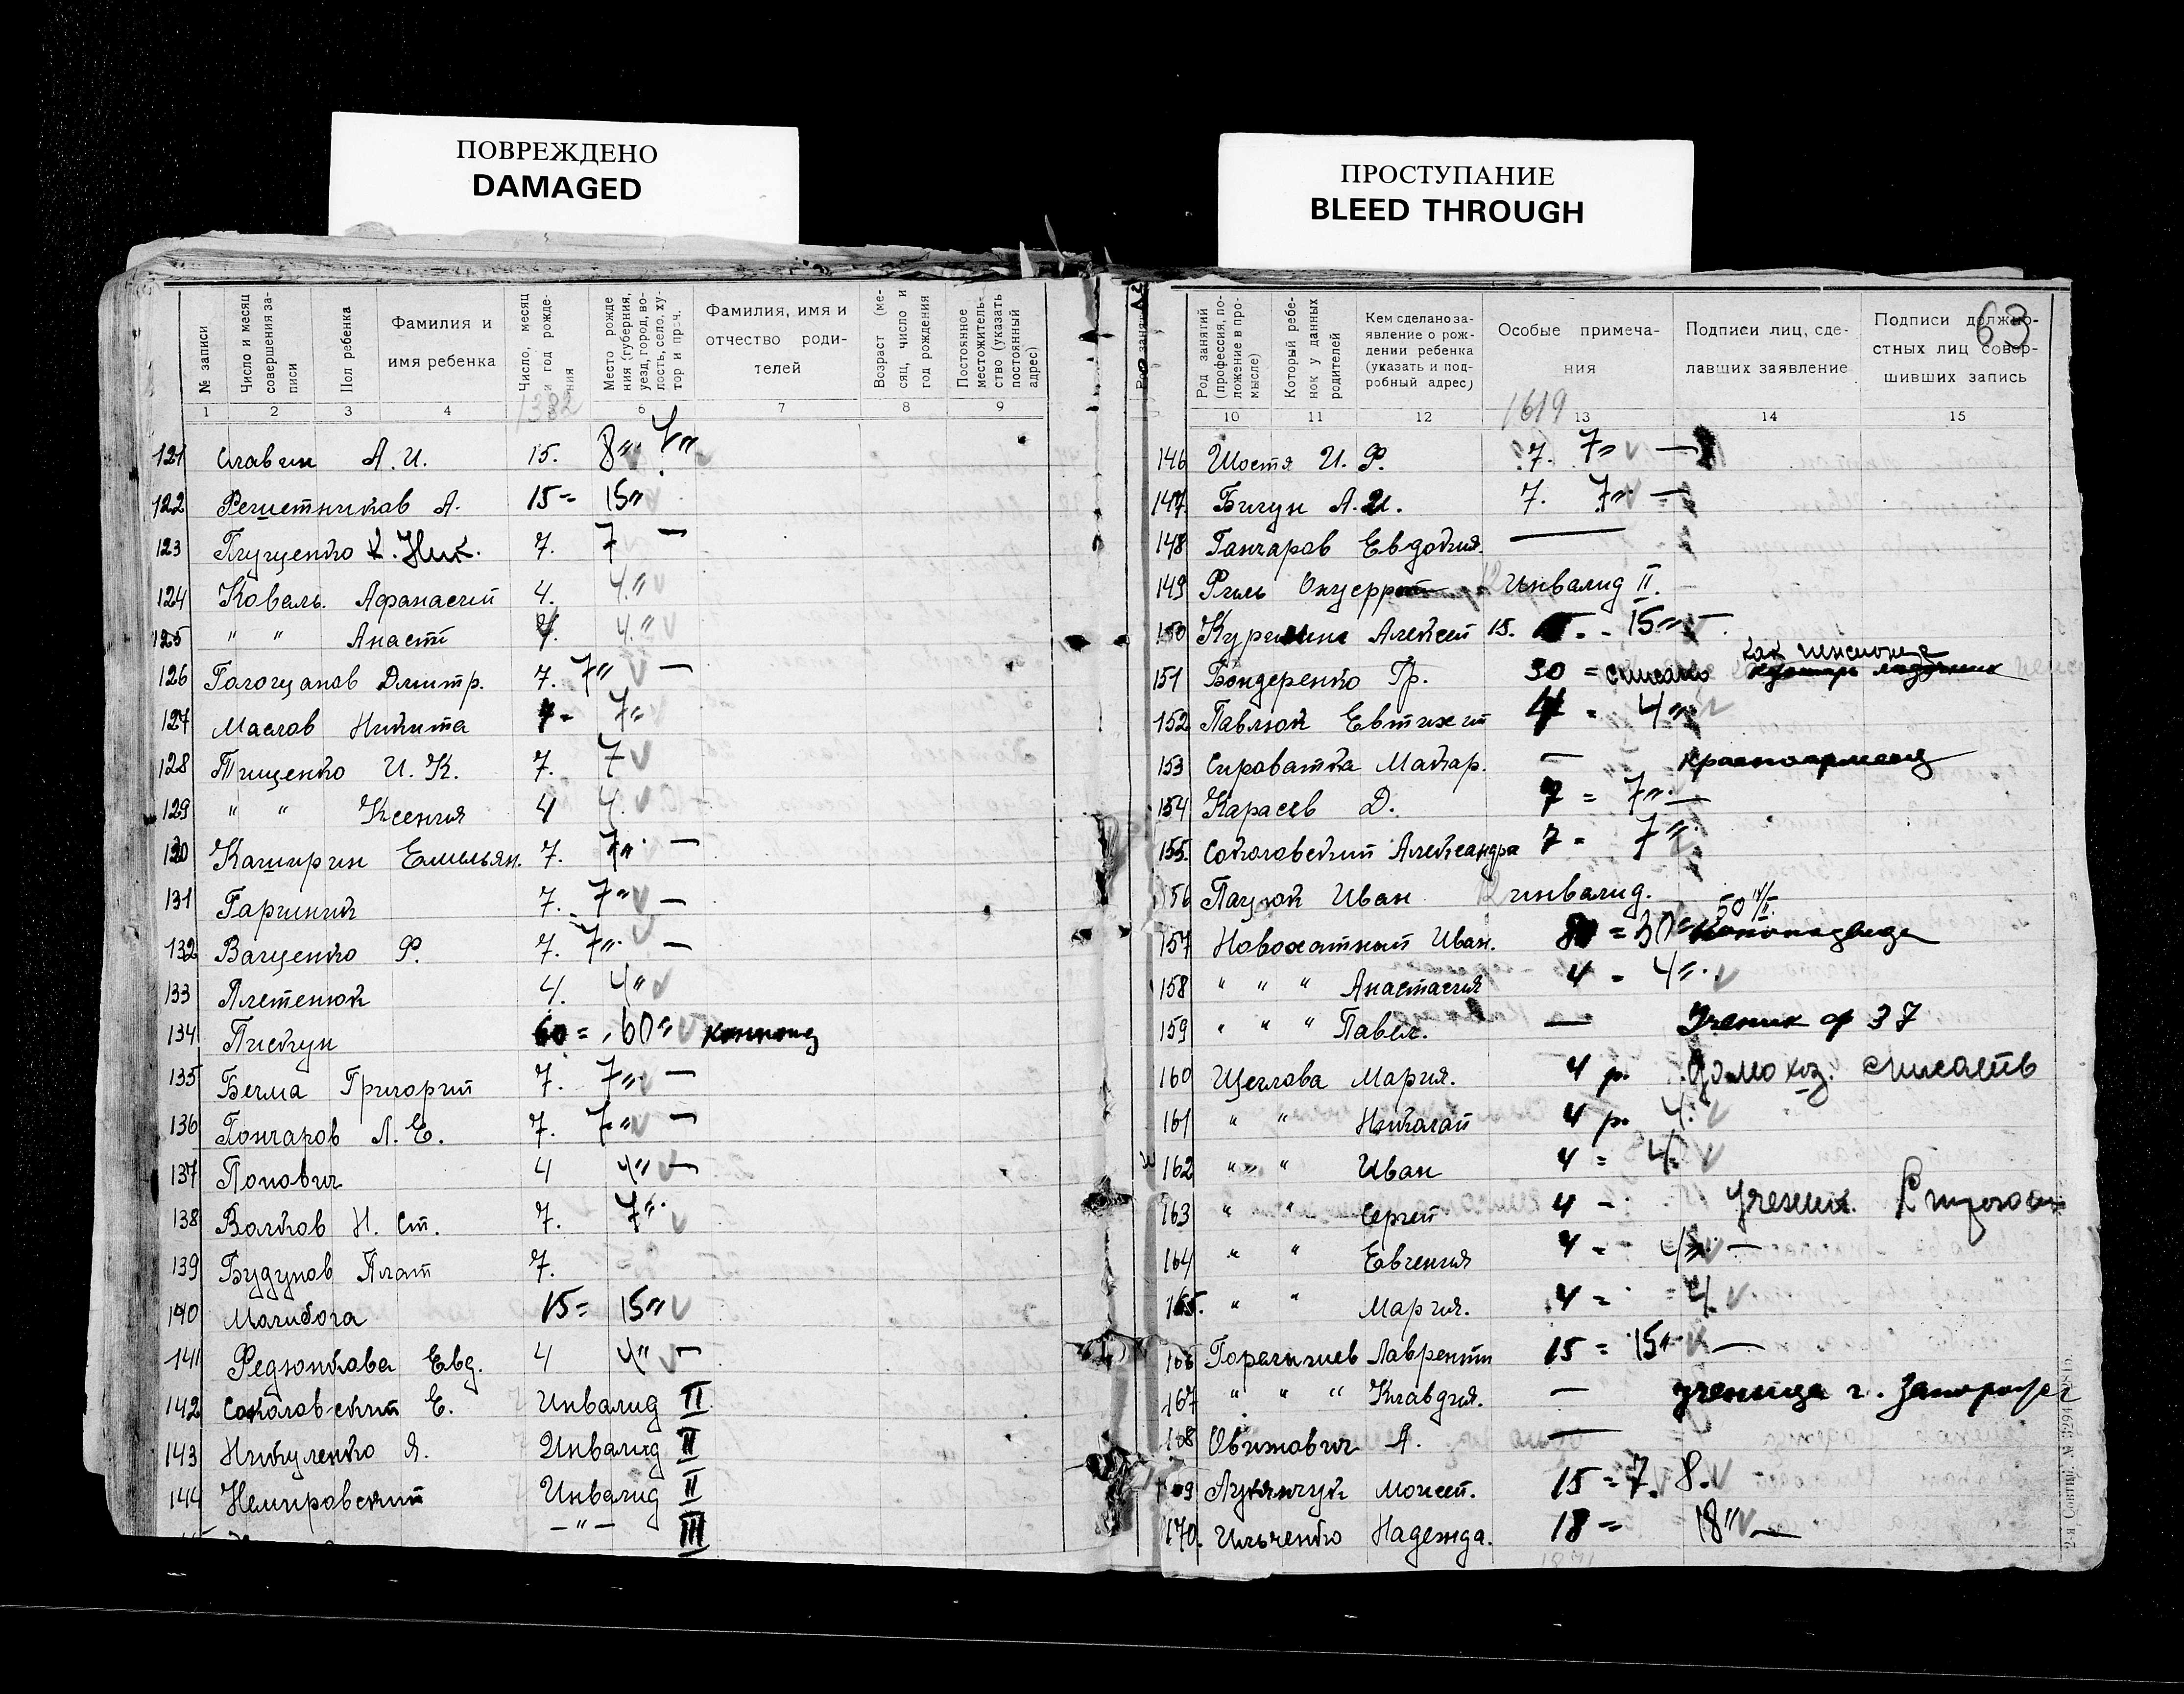 ПОВРЕЖДЕНО
DAMAGED
ПРОСТУПАНИЕ
BLEED THROUGH
№ записи
Число и месяц совершения записи
Пол ребенка
Фамилия и
имя ребенка
Число, месяц и год рождения
Место рождения (губерния, уезд, город, волость, село, хутор и проч.
Фамилия, имя и
отчество роди-
телей
Возраст (месяц, число и год рождения
Постоянное местожительство (указать постоянный адрес)
1 2 3 4 6 7 8 9
121 Славин А. И. 15. 8" 7"
122 Решетников А. 15= 15"
123 Глущенко К. Ник. 7. 7 —
124 Коваль. Афанасий 4. 4." V
125 " " Анаст 4. 4." V
126 Гологуанов Дмитр. 7. 7" V —
127 Маслов Никита 7= 7"
128 Тищенко И. К. 7. 7 V
129 " " Ксения 4 4. V
130 Каширин Емельян. 7. 7". —
131 Гаркий 7. 7" V —
132 Ващенко Ф. 7. 7". V —
133 Плетенюк 4. 4" V
134 Пискун 60 = 60" V
135 Бечма Григорий 7. 7" V —
136 Гончаров Л. Е. 7. 7" V —
137 Попович 4 4" V —
138 Волков Н. Ст. 7. 7". V
139 Будунов Плат 7.
140 Молибога 15= 15" V
141 Федюкова Евд. 4 4" V —
142 Соколовский Е. Инвалид II
143 Никуленко Я. Инвалид II
144 Немировский Инвалид II
— " — III
63
Род занятий (профессия, положение в промысле)
Который ребенок у данных родителей
Кем сделано за-
явление о рож-
дении ребенка
(указать и под-
робный адрес)
Особые примеча-
ния
Подписи лиц, сде-
лавших заявление
Подписи должно-
стных лиц совер-
шивших запись
1619
10 11 12 13 14 15
146 Шостя И. Ф. 7. 7" V —
147. Бичун А. И. 7. 7" V —
148 Ганчаров Евдокия. —
149 Инвалид II.
150 Алексей 15. 15" V —
как пенсионер
151 Бондеренко Гр. 30 = списано
152 Павлюк Евтихий 4 = 4" V
153 Сироватка Макар. — красноармеец
154 Карасев Д. 7 = 7". —
155. Соколовский Александра 7 = 7".
156 Пацюк Иван инвалид.
157 Новохатный Иван. = 30=
158 " " " Анастасия 4 = 4". V
159 " " " Павел. — Ученик ф 37
160 Щеглова Мария. 4 р. домохоз. списать
161 " " Николай 4 р. 4. V
162 " " Иван 4 = 4. V
163 " " Сергей 4 = ученик.
164 " " Евгения 4 = 4" V —
165. " " Мария. 4 = 4. V
166 Лаврентий 15 = 15" V —
167 " " " Клавдия. — ученица г.
168 А. —
169 Лукянчук Моисей. 15 = 7. 8. V
170. Ильченко Надежда. 18 = 18" V —